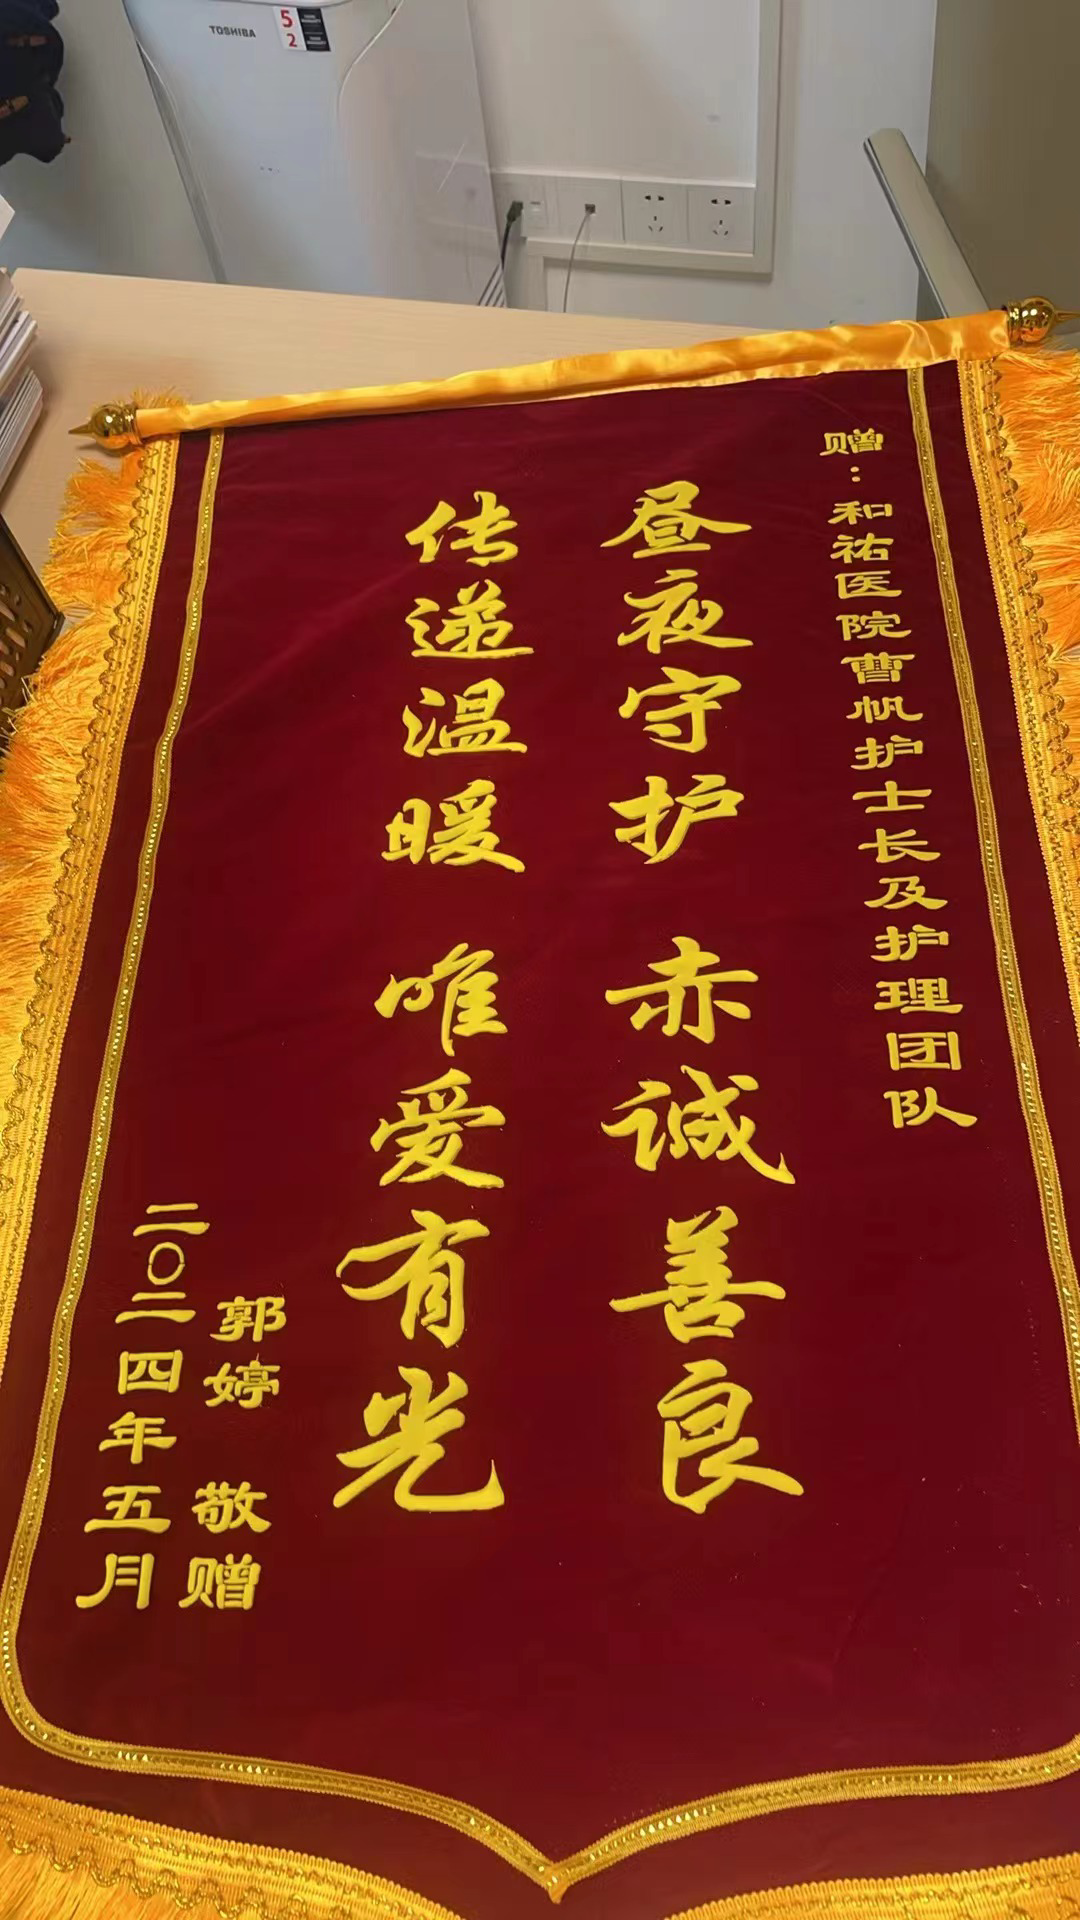 TOSHIBA
5
2
赠:和祐医院曹帆护士长及护理团队
昼夜守护 赤诚善良
传递温暖 唯爱有光
郭婷 敬赠
二〇二四年五月